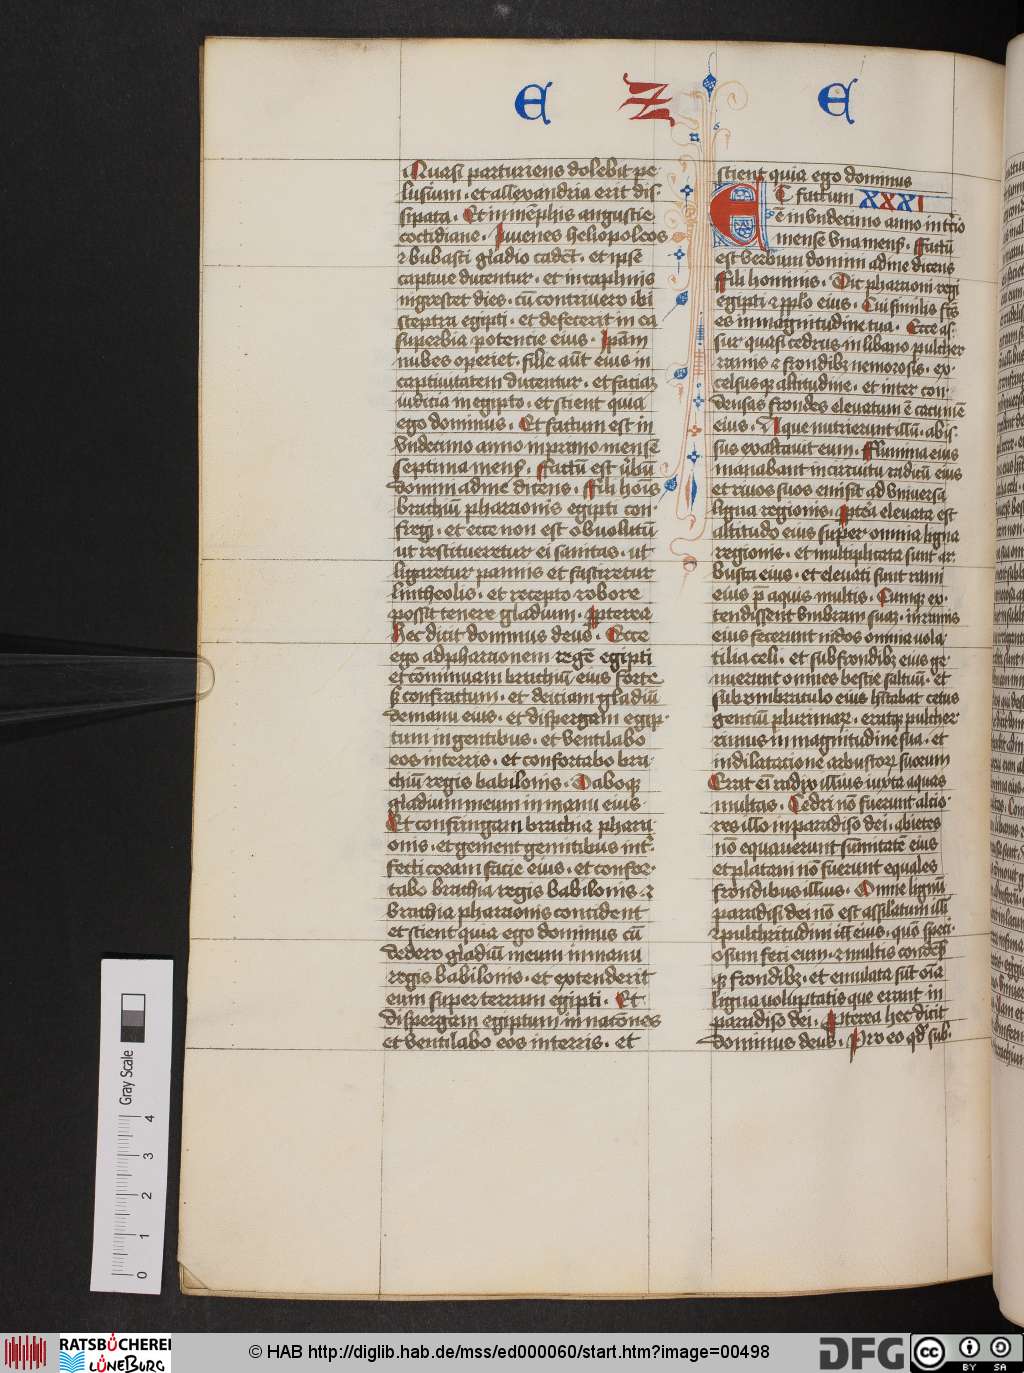 E Z E
Quasi parturiens dolebit pe
lusium . et allexandria erit dis
sipata . Et in mēphis angustie
cottidiane . Iuuenes heliopoleos
⁊ bubasti gladio cadēt . et ipse
captiue ducentur . et in taphnis
nigrescet dies . cū contriuero ibi
sceptra egipti . et defecerit in ea
superbia potencie eius . Ipām
nubes operiet . filie aūt eius in
captiuitatem ducentur . et faciaꝫ
iudicia in egipto . et scient quia
ego dominus . Et factum est in
vndecimo anno in primo mense
septima mens̄ . Factū est v̄bū
domini ad me dicens . Fili hoīs
brachiū pharaonis egipti con-
fregi . et ecce non est obuolutū
ut restitueretur ei sanitas . ut
ligaretur pannis et fasciretur
lintheolis . et recepto robore
posset tenere gladium . Ipterea
hec dicit dominus deus . Ecce
ego ad pharaonem regē egipti
et cōminuam brachiū eius forte
ꝫ confractum . et deiciam gladiū
de manu eius . et dispergam egip-
tum in gentibus . et ventilabo
eos in terris . et confortabo bra
chiū regis babilonis . Daboqꝫ
gladium meum in manu eius
Et confringam brachia phara
onis . et gement gemitibus int̄-
fecti coram facie eius . et confor-
tabo brachia regis babilonis ⁊
brachia pharaonis concident
et scient quia ego dominus cū
dedero gladiū meum in manu
regis babilonis . et extenderit
eum super terram egipti . Et
dispergam egiptum in nacōnes
et ventilabo eos in terris . et
scient quia ego dominus
ET factum XXXI
ē in vndecimo anno in tc̄io
mense vna mens̄ . Factū
est verbum domini ad me dicens
Fili hominis . Dic pharaoni regi
egipti ⁊ ppl̄o eius . Cui similis fc̄s
es in magnitudine tua . Ecce as-
sur quasi cedrus in libano pulcher
ramis ⁊ frondibꝫ nemorosis . ex-
celsusqꝫ altitudine . et inter con
densas frondes eleuatum ē cacumē
eius . Aque nutrierunt illū . abis-
sus exaltauit eum . Flumina eius
manabant in circuitu radicū eius
et riuos suos emisit ad vniuersa
ligna regionis . Iptēa eleuata est
altitudo eius super omnia ligna
regionis . et multiplicata sunt ar
busta eius . et eleuati sunt rami
eius p̄ aquis multis . Cumqꝫ ex-
tendissent vmbram suaꝫ . in ramis
eius fecerunt nidos omnia vola
tilia celi . et sub frondibꝫ eius ge
nuerunt omnes bestie saltuū . et
sub vmbraculo eius habitabat cetus
gentiū plurimaꝝ . eratqꝫ pulcher
rimus in magnitudine sua . et
in dilatacione arbustoꝝ suorum
Erat eī radix illius iuxta aquas
multas . Cedri nō fuerunt alcio-
res illo in paradiso dei . abietes
nō equauerunt sūmitatē eius
et platani nō fuerunt equales
frondibus illius . Omne lignū
paradisi dei nō est assilatum illi
⁊ pulchritudini eius . quō speci-
osum feci eum . ⁊ multis condēs̄
qꝫ frondibꝫ . et emulata sūt oīa
ligna voluptatis que erant in
paradiso dei . Ipterea hec dicit
dominus deus . Pro eo qd̄ sub-
Gray Scale
0 1 2 3 4
RATSBÜCHEREI
LÜNEBURG
© HAB http://diglib.hab.de/mss/ed000060/start.htm?image=00498
DFG
cc BY SA